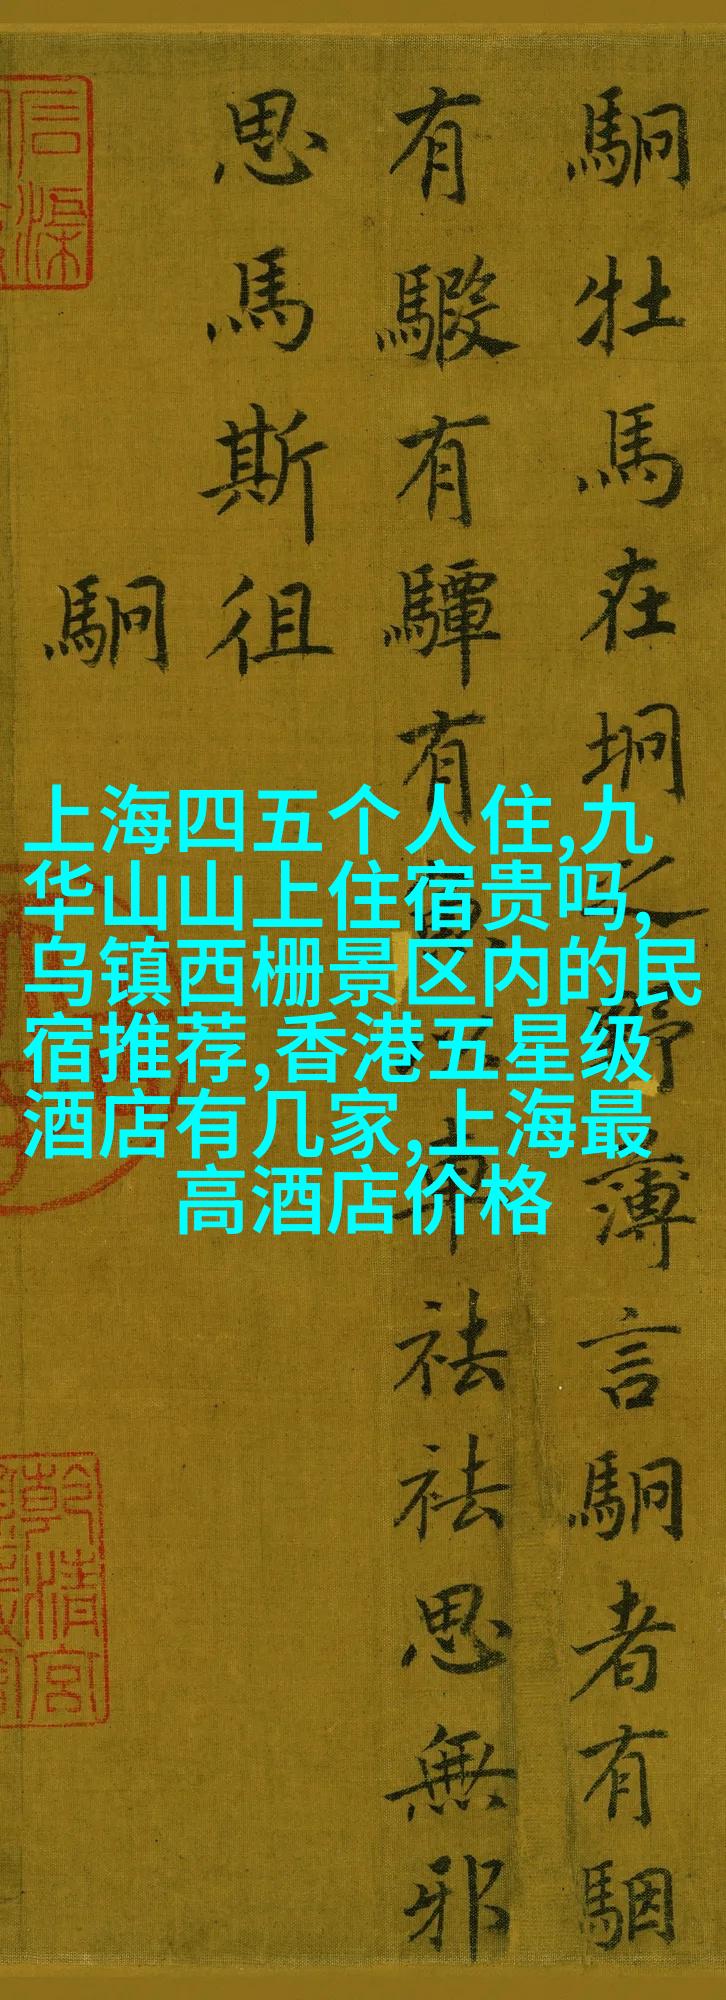 駉牡馬在坰之野薄言駉者有駰
有騢有驔有魚以車祛祛思無邪
思馬斯徂
駉
上海四五个人住,九
华山山上住宿贵吗,
乌镇西栅景区内的民
宿推荐,香港五星级
酒店有几家,上海最
高酒店价格
乾清宮